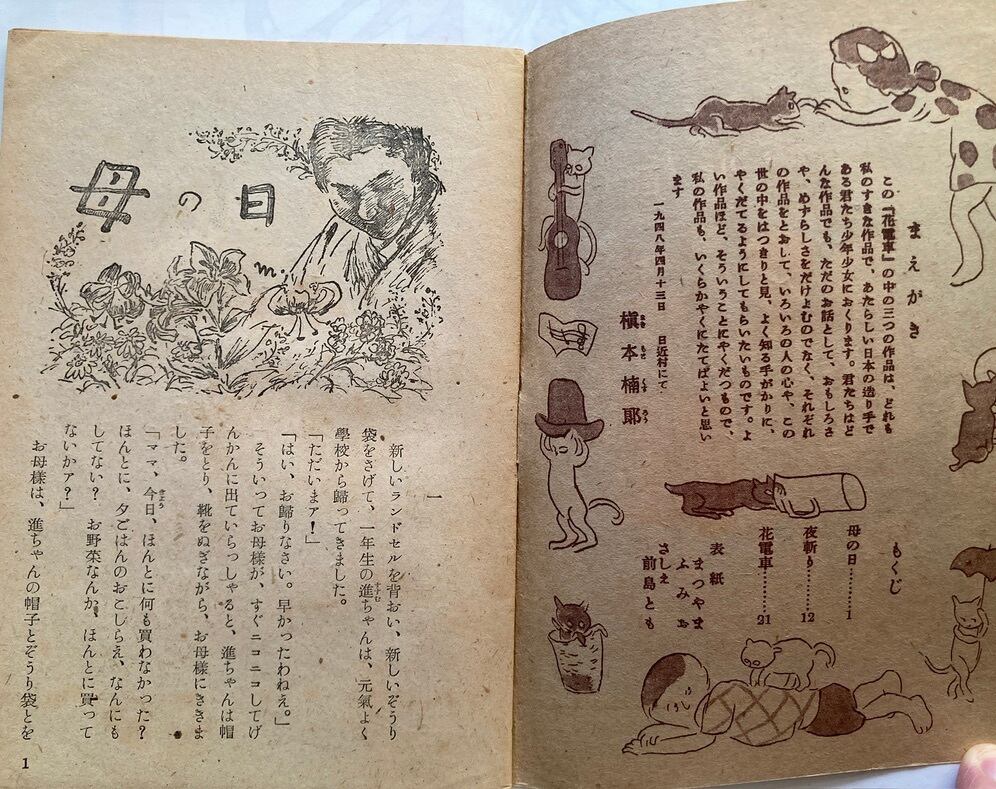 まえがき
この『花電車』の中の三つの作品は、どれも
私のすきな作品で、あたらしい日本の造り手で
ある君たち少年少女におくります。君たちはど
んな作品でも、ただのお話として、おもしろさ
や、めずらしさをだけよむのでなく、それぞれ
の作品をとおして、いろいろの人の心や、この
世の中をはつきりと見、よく知る手がかりに、
やくだてるようにしてもらいたいものです。よ
い作品ほど、そういうことにやくだつもので、
私の作品も、いくらかやくにたてばよいと思い
ます
一九四八年四月十三日 日近村にて
槇本楠郎
まきもとくすろう
もくじ
母の日………1
夜斬り………12
花電車………21
表紙
まつやまふみお
さしえ
前島とも
母の日
一
新しいランドセルを背おい、新しいぞうり
袋をさげて、一年生の進ちゃんは、元氣よく
學校から歸ってきました。
「ただいまァ！」
「はい、お歸りなさい。早かったわねえ。」
そういってお母様が、すぐニコニコしてげ
んかんに出ていらっしゃると、進ちゃんは帽
子をとり、靴をぬぎながら、お母様にききま
した。
「ママ、今日、ほんとに何も買わなかった？
ほんとに、夕ごはんのおこしらえ、なんにも
してない？　お野菜なんか、ほんとに買って
ないかァ？」
お母様は、進ちゃんの帽子とぞうり袋とを
1